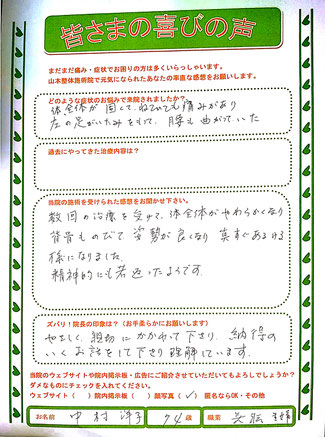 皆さまの喜びの声
まだまだ痛み・症状でお困りの方は多くいらっしゃいます。
山本整体施術院で元気になられたあなたの率直な感想をお願いします。
どのような症状のお悩みで来院されましたか？
体全体が固くて、ねていても痛みがあり
左の足がいたみをもって、腰も曲がっていた
過去にやってきた治療内容は？
当院の施術を受けられた感想をお聞かせ下さい。
数回の治療を受けて、体全体がやわらかくなり
背骨ものびて 姿勢が良くなり 真すぐあるける
様になりました。
精神的にも若返ったようです。
ズバリ！院長の印象は？（お手柔らかにお願いします）
やさしく、親切に かかわって下さり、納得の
いくお話をして下さり 理解しています。
当院のウェブサイトや院内掲示板・広告にご紹介させていただいてもよろしでしょうか？
ダメなものにチェックを入れてください。
ウェブサイト（　）院内掲示板（　）顔写真（✓）匿名ならOK・その他
お名前 中村 洋子 74歳 職業